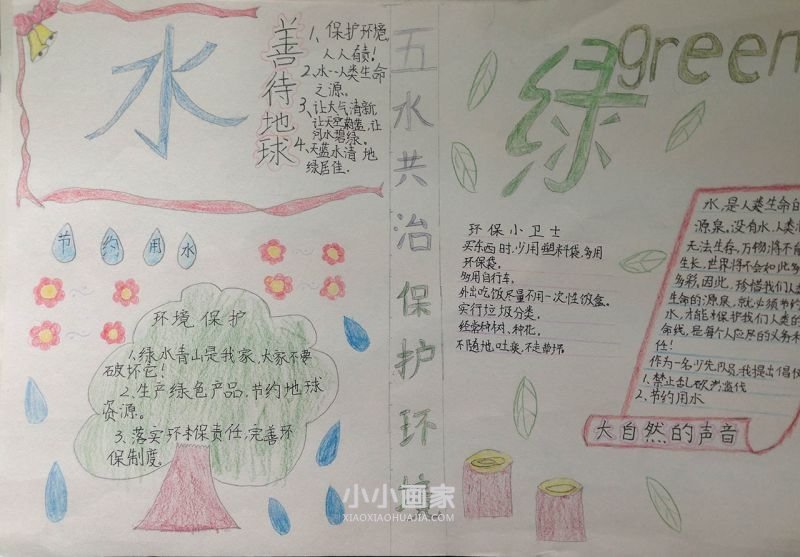 水
善待地球
1、保护环境,
人人有责!
2、水--人类生命
之源。
3、让大气清新,
让天空蔚蓝,让
河水碧绿。
4、天蓝水清 地
绿居佳。
节约用水
环境保护
1、绿水青山是我家,大家不要
破坏它!
2、生产绿色产品,节约地球
资源。
3、落实环保责任,完善环
保制度。
五水共治保护环境
绿
green
环保小卫士
买东西时,少用塑料袋,多用
环保袋。
多用自行车。
外出吃饭尽量不用一次性饭盒。
实行垃圾分类。
经常种树、种花。
不随地吐痰,不走草坪。
水,是人类生命的
源泉,没有水,人类
无法生存,万物将不能
生长,世界将不会如此多
多彩,因此,珍惜我们人类
生命的源泉,就必须节约
水,才能保护我们人类的
命线,是每个人应尽的义务和
任!
作为一名少先队员,我提出倡
1、禁止乱砍
2、节约用水
大自然的声音
小小画家
XIAOXIAOHUAJIA.COM